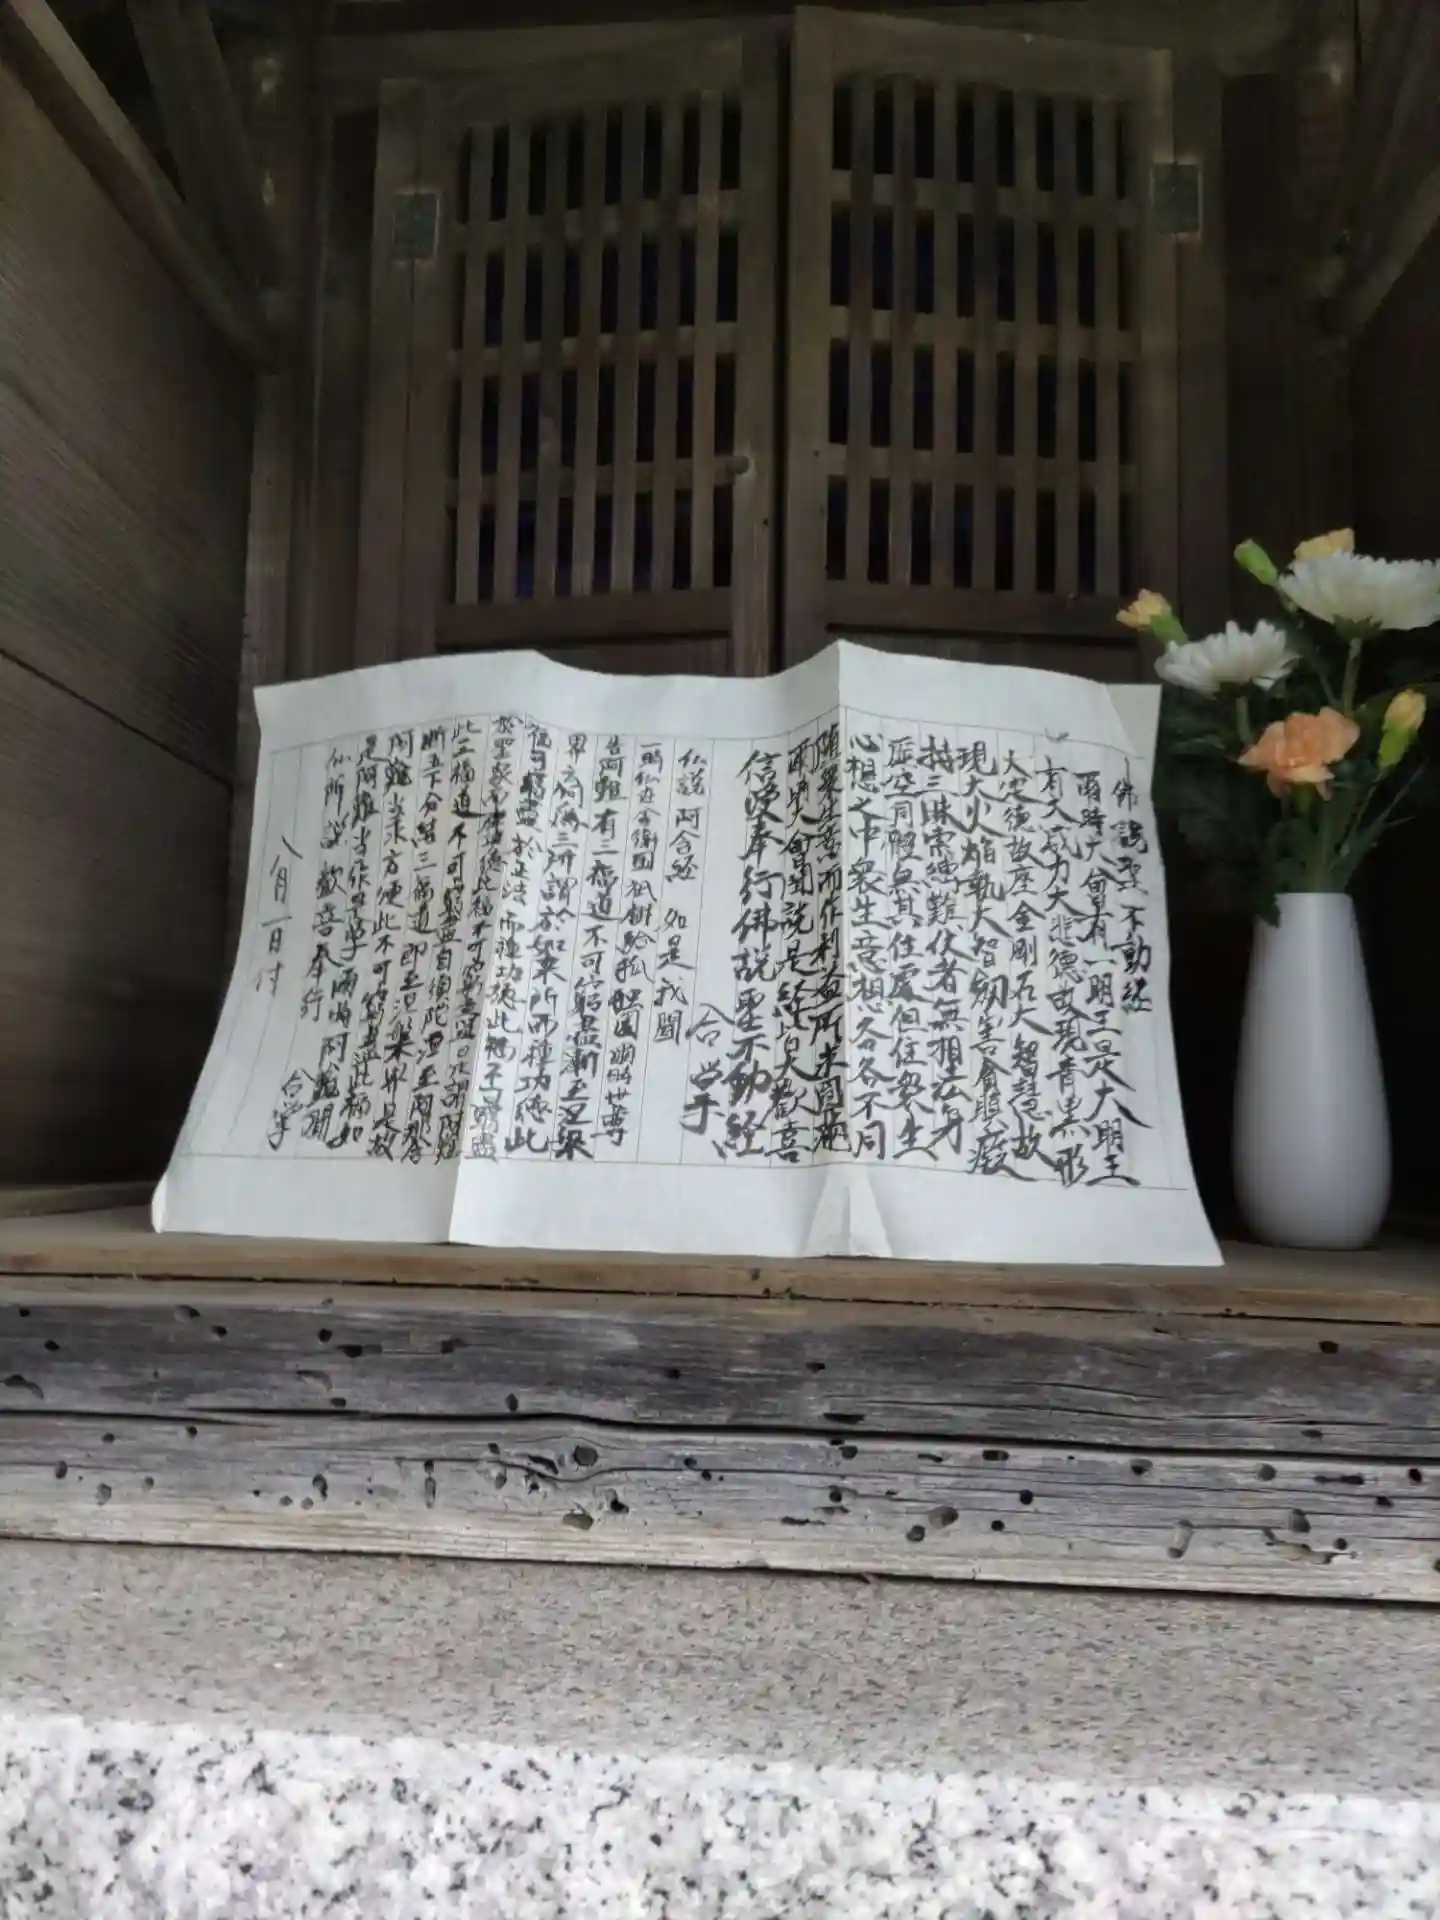 佛説聖不動経
爾時大會有一明王是大明王
有大威力大悲徳故現青黒形
大定徳故座金剛石大智慧故
現大火焔執大智劔害貪瞋癡
持三昧索縛難伏者無相法身
虚空同體無其住處但住衆生
心想之中衆生意想各各不同
随衆生意而作利益所求圓満
爾時大會聞説是経皆大歓喜
信受奉行佛説聖不動経
合掌
仏説阿含経 如是我聞
一時仏在舎衛国祇樹給孤独園爾時世尊
告阿難有三福道不可窮盡漸至涅槃
界云何為三所謂於如来所而種功徳此
福不可窮盡於正法而種功徳此福不可窮盡
於聖衆而
此三福道不可窮盡
断五下分結三福道即至涅槃界是故
阿難当求方便此不可窮盡此福如
是阿難当作是学爾時阿難聞
仏所説歓喜奉行 合掌
八月一日付